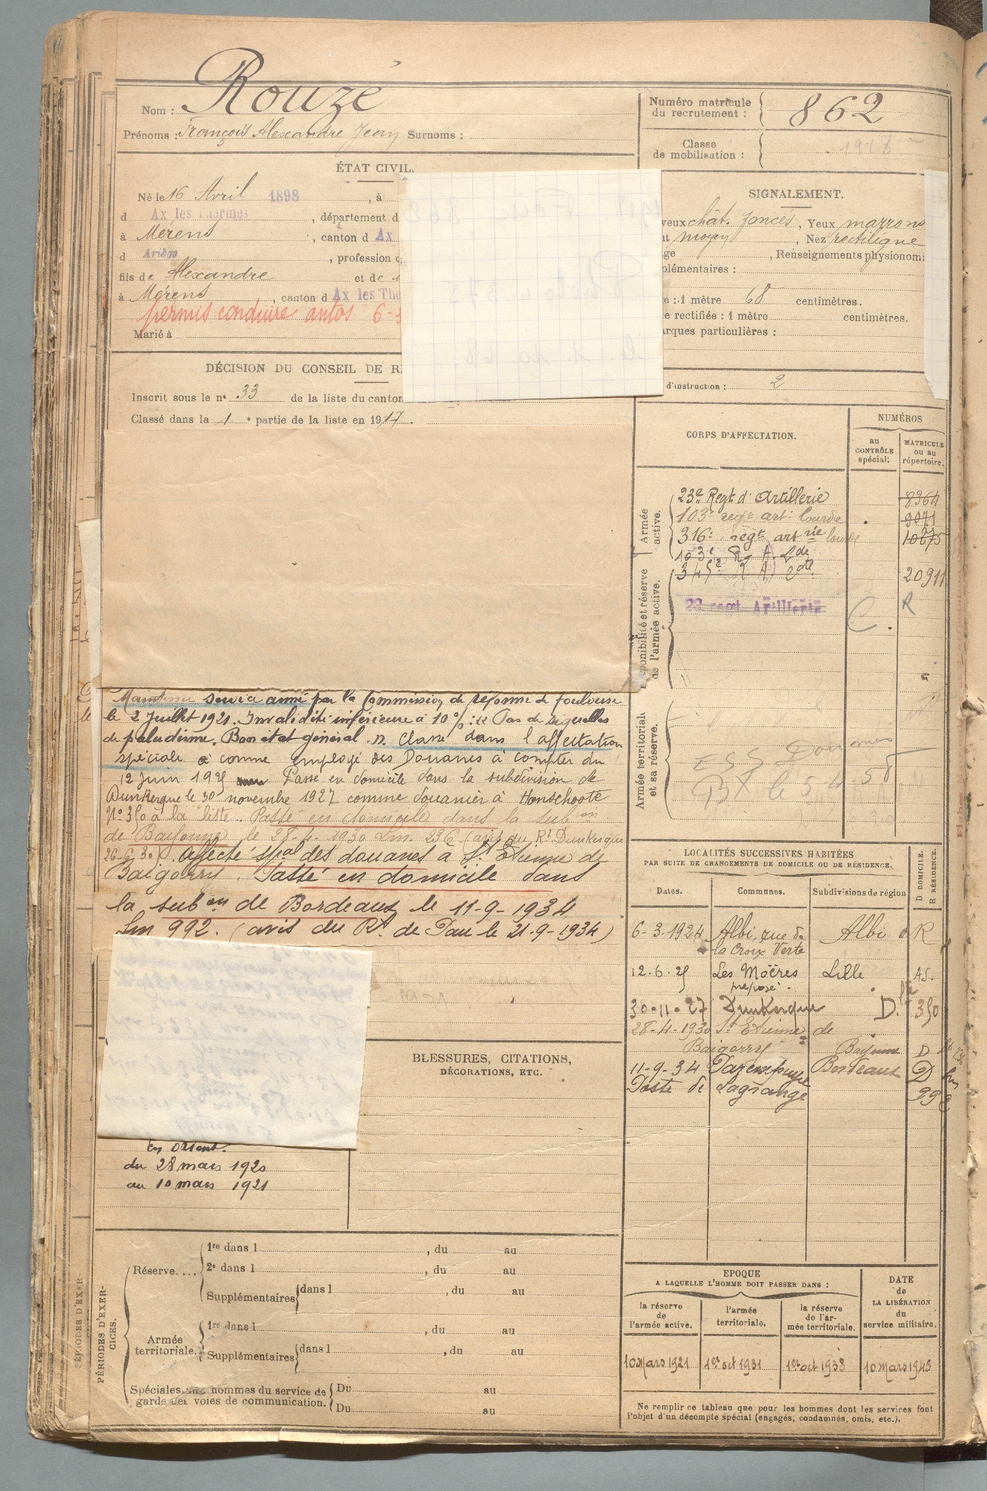 Nom : Rouzé
Prénoms : François Alexandre Jean Surnoms :
Numéro matricule du recrutement : 862
Classe de mobilisation : 1918
ÉTAT CIVIL.
Né le 16 Avril 1898, à
d Ax les Thermes, département d
à Merens, canton d Ax
d Ariège, profession d
fils de Alexandre et de
à Mérens, canton d Ax les The
permis conduire autos 6-3
Marié à
SIGNALEMENT.
veux chât. foncés, Yeux marrons
t moyen, Nez rectiligne
ge, Renseignements physionom
plémentaires :
e : 1 mètre 68 centimètres.
e rectifiée : 1 mètre centimètres.
arques particulières :
d'instruction : 2
DÉCISION DU CONSEIL DE R
Inscrit sous le n° 33 de la liste du canton
Classé dans la 1e partie de la liste en 1917.
CORPS D'AFFECTATION.
NUMÉROS
au CONTRÔLE spécial.
MATRICULE ou au répertoire.
Armée active.
23e Regt d'Artillerie 8364
103e regt art. lourde 9071
316e regt art rie lourde 10875
103e R. A. Lde
345e R A 20911
ponibilité et réserve de l'armée active.
23 regt Artillerie
C. R
Armée territoriale et sa réserve.
Maintenu service armé par la Commission de réforme de Toulouse
le 2 juillet 1921. Invalidité inférieure à 10 % : Pas de séquelles
de paludisme. Bon état général. Classé dans l'affectation
spéciale comme employé des Douanes à compter du
12 Juin 1925 Passé en domicile dans la subdivision de
Dunkerque le 30 novembre 1927 comme douanier à Honschoote
N° 350 à la liste. Passé en domicile dans la sub on
de Bayonne le 28-4-1930 (avis du Rt Dunkerque
Affecté spal des douanes à St Etienne de
Baigorry. Passé en domicile dans
la sub on de Bordeaux le 11-9-1934
Lm 992. (avis du Rt de Pau le 21-9-1934)
LOCALITÉS SUCCESSIVES HABITÉES
PAR SUITE DE CHANGEMENTS DE DOMICILE OU DE RÉSIDENCE.
D DOMICILE. R RÉSIDENCE.
Dates. Communes. Subdivisions de région
6-3-1924 Albi, rue de la Croix Verte Albi R
12.6.25 Les Moëres préposé. Lille AS.
30-11-27 Dunkerque D. 350
28-4-1930 St Etienne de
Baigorry Bayonne D
11-9-34 Parempuyre Bordeaux D
Poste de Lagrange 99
BLESSURES, CITATIONS,
DÉCORATIONS, ETC.
En Orient.
du 28 mars 1920
au 10 mars 1921
PÉRIODES D'EXER-
CICES.
Réserve....
1re dans l , du au
2e dans l , du au
Supplémentaires dans l , du au
Armée territoriale.
1re dans l , du au
Supplémentaires dans l , du au
Spéciales aux hommes du service de garde des voies de communication.
Du au
Du au
EPOQUE
A LAQUELLE L'HOMME DOIT PASSER DANS :
DATE de LA LIBÉRATION du service militaire.
la réserve de l'armée active.
l'armée territoriale.
la réserve de l'armée territoriale.
10 mars 1921 1er oct 1931 1er oct 1938 10 mars 1945
Ne remplir ce tableau que pour les hommes dont les services font
l'objet d'un décompte spécial (engagés, condamnés, omis, etc.).
PÉRIODES D'EXER